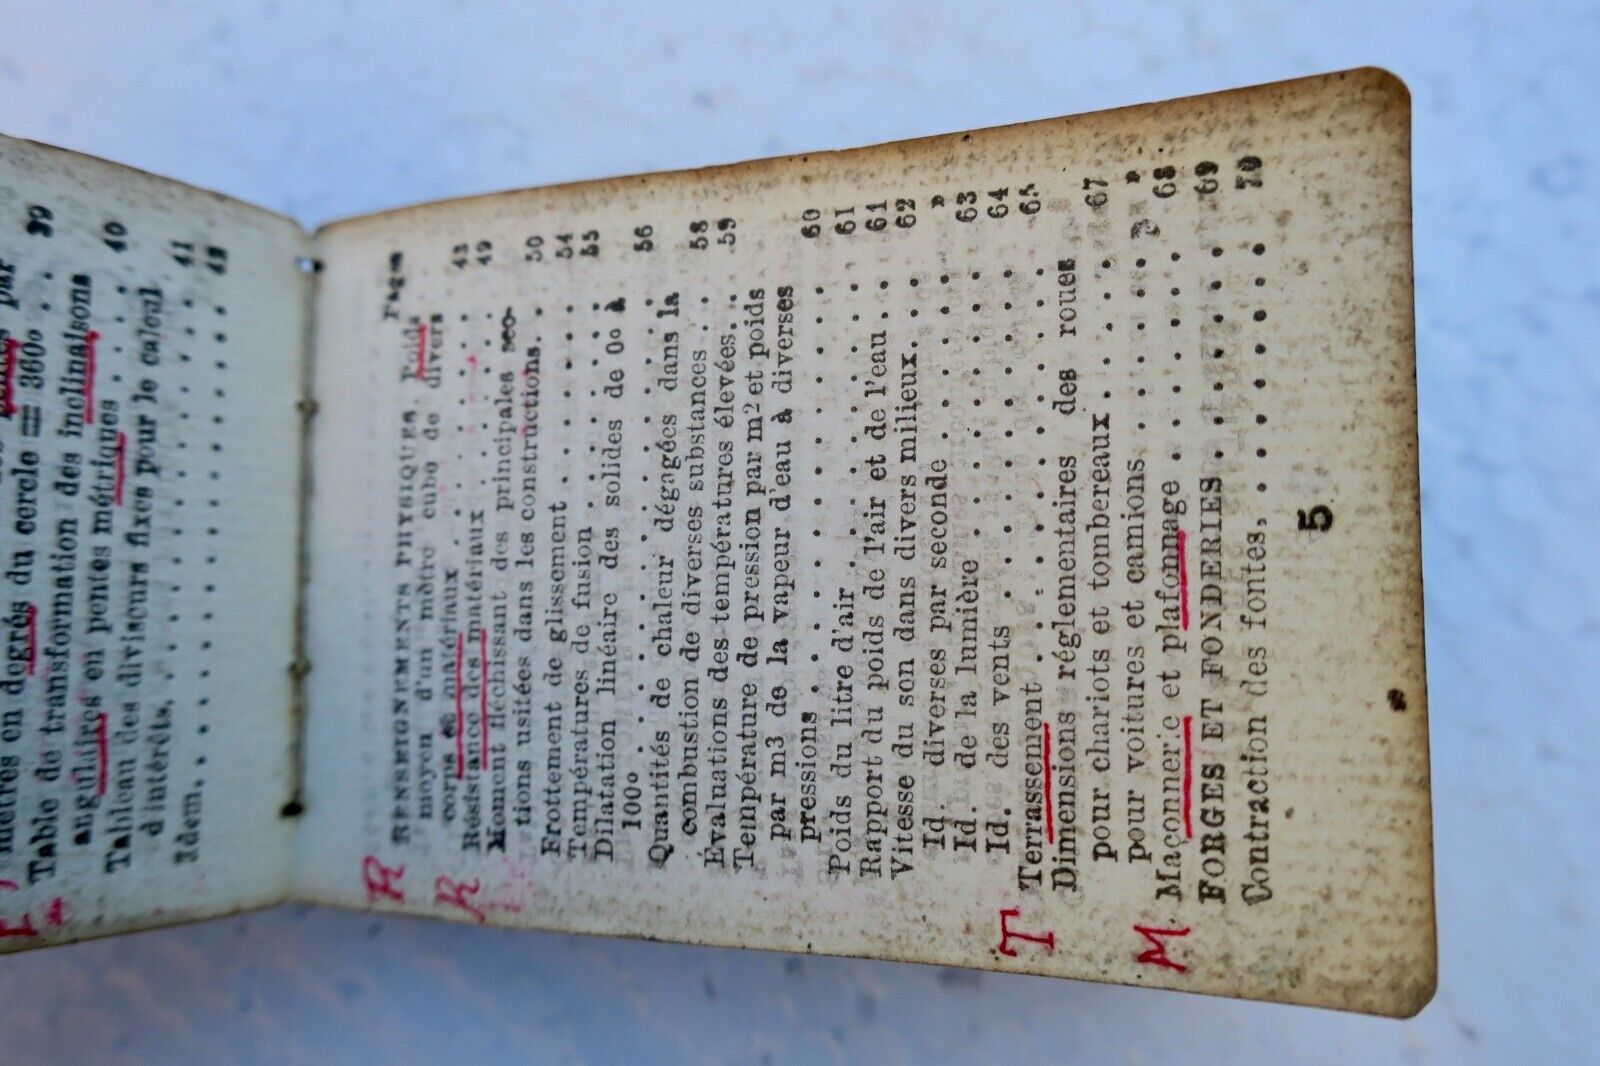 mètres en degrés du cercle = 360° . . 39
Table de transformation des inclinaisons
angulaires en pentes métriques . . . . 40
Tableau des diviseurs fixes pour le calcul
d'intérêts. . . . . . . . . . . . 41
Idem. . . . . . . . . . . . . . 42
Pages
R RENSEIGNEMENTS PHYSIQUES. Poids
moyen d'un mètre cube de divers
corps et matériaux . . . . . . . . 43
R Résistance des matériaux . . . . . . . 49
Moment fléchissant des principales sec-
tions usitées dans les constructions. . . 50
Frottement de glissement . . . . . . . 54
Températures de fusion . . . . . . . . 55
Dilatation linéaire des solides de 0° à
100° . . . . . . . . . . . . . . 56
Quantités de chaleur dégagées dans la
combustion de diverses substances . . . 58
Évaluations des températures élevées. . . 59
Température de pression par m2 et poids
par m3 de la vapeur d'eau à diverses
pressions . . . . . . . . . . . . 60
Poids du litre d'air . . . . . . . . . 61
Rapport du poids de l'air et de l'eau . . . 61
Vitesse du son dans divers milieux. . . . 62
Id. diverses par seconde . . . . . . »
Id. de la lumière . . . . . . . . . 63
Id. des vents . . . . . . . . . . 64
T Terrassement . . . . . . . . . . . 65
Dimensions réglementaires des roues
pour chariots et tombereaux . . . . . 67
pour voitures et camions . . . . . . »
M. Maçonnerie et plafonnage . . . . . . 68
FORGES ET FONDERIES . . . . . . . 69
Contraction des fontes, . . . . . . . . 70
5